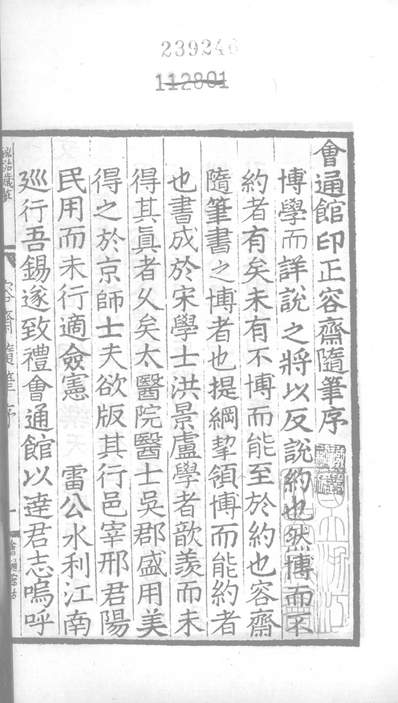 239246
112801
會通館印正容齋隨筆序
博學而詳說之將以反說約也然博而不
約者有矣未有不博而能至於約也容齋
隨筆書之博者也提綱挈領博而能約者
也書成於宋學士洪景盧學者歆羡而未
得其眞者久矣太醫院醫士吳郡盛用美
得之於京師士夫欲版其行邑宰邢君陽
民用而未行適僉憲 雷公水利江南
廵行吾錫遂致禮會通館以達君志嗚呼
容齋隨筆序